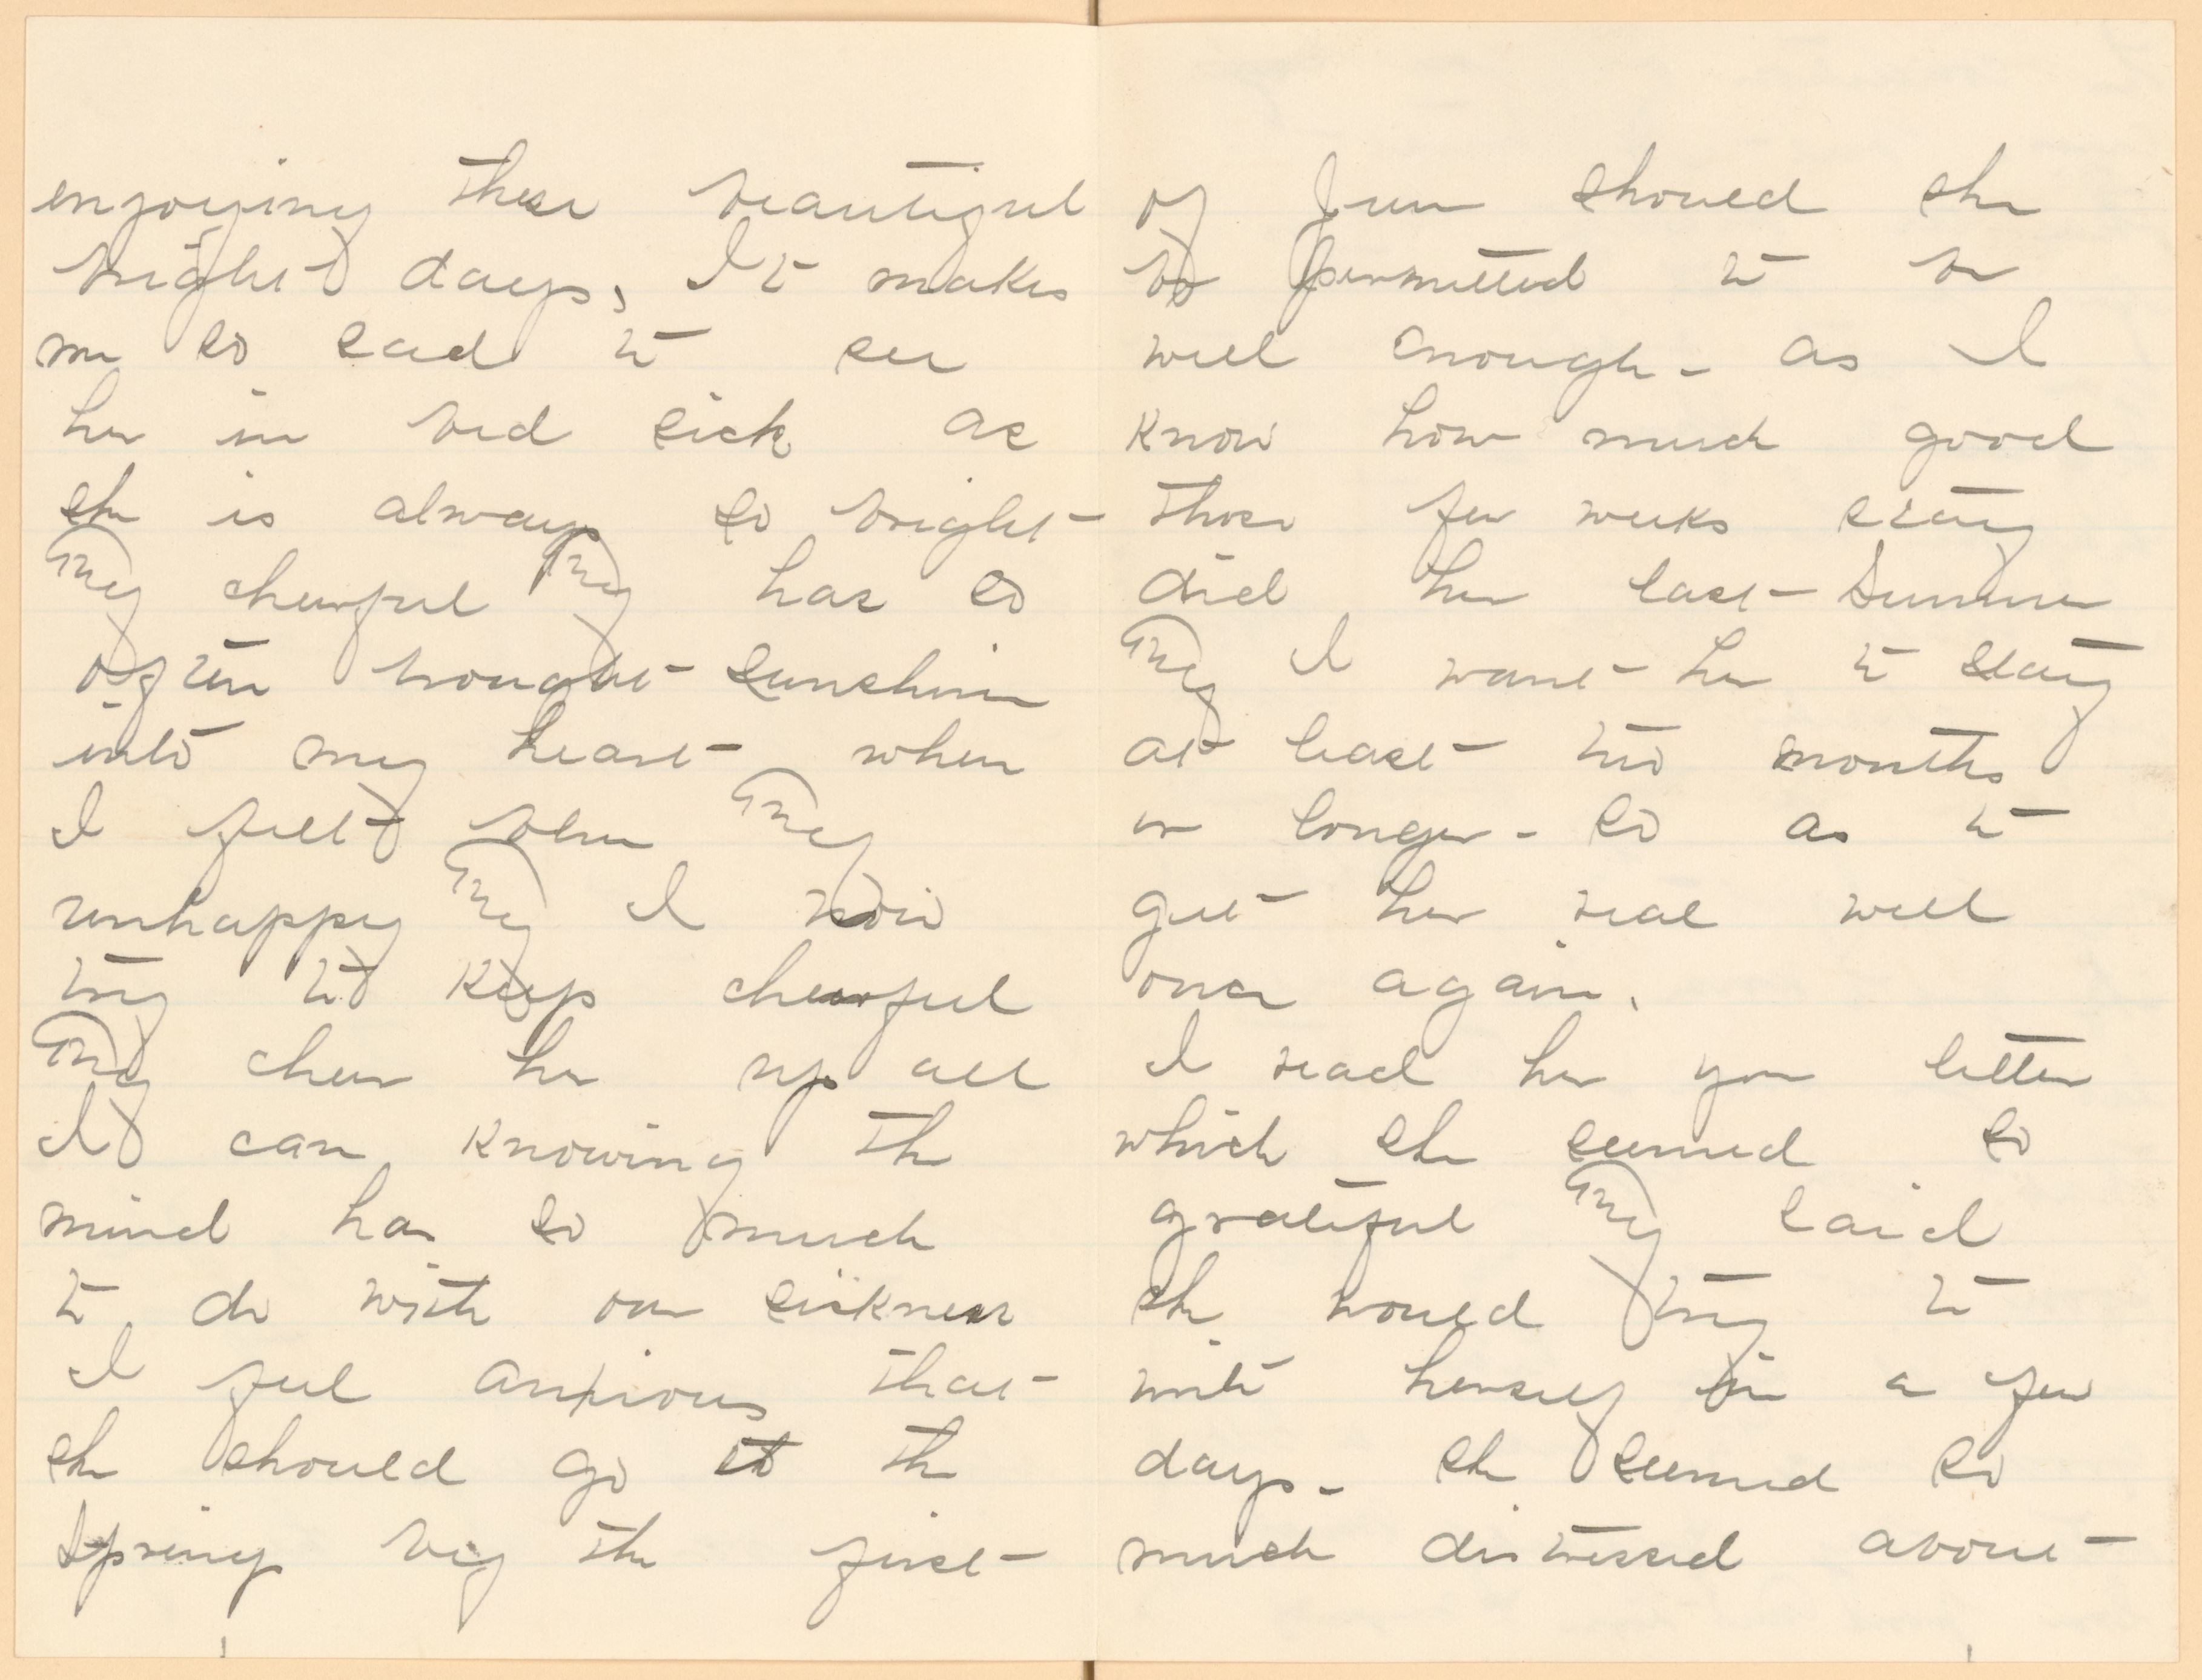 enjoying these beautiful
bright days, It makes
me so sad to see
her in bed sick as
she is always so bright
and cheerful and has so
often brought sunshine
into my heart when
I felt blue and
unhappy and I now
try to keep cheerful
and cheer her up all
I can knowing the
mind has so much
to do with our sickness
I feel anxious that
she should go to the
Springs by the first
of June should she
be permitted to be
well enough - as I
know how much good
those few weeks stay
did her last Summer
and I want her to stay
at least two months
or longer - so as to
get her real well
once again.
I read her your letter
which she seemed so
grateful and said
she would try to
write herself in a few
days - she seemed so
much distressed about